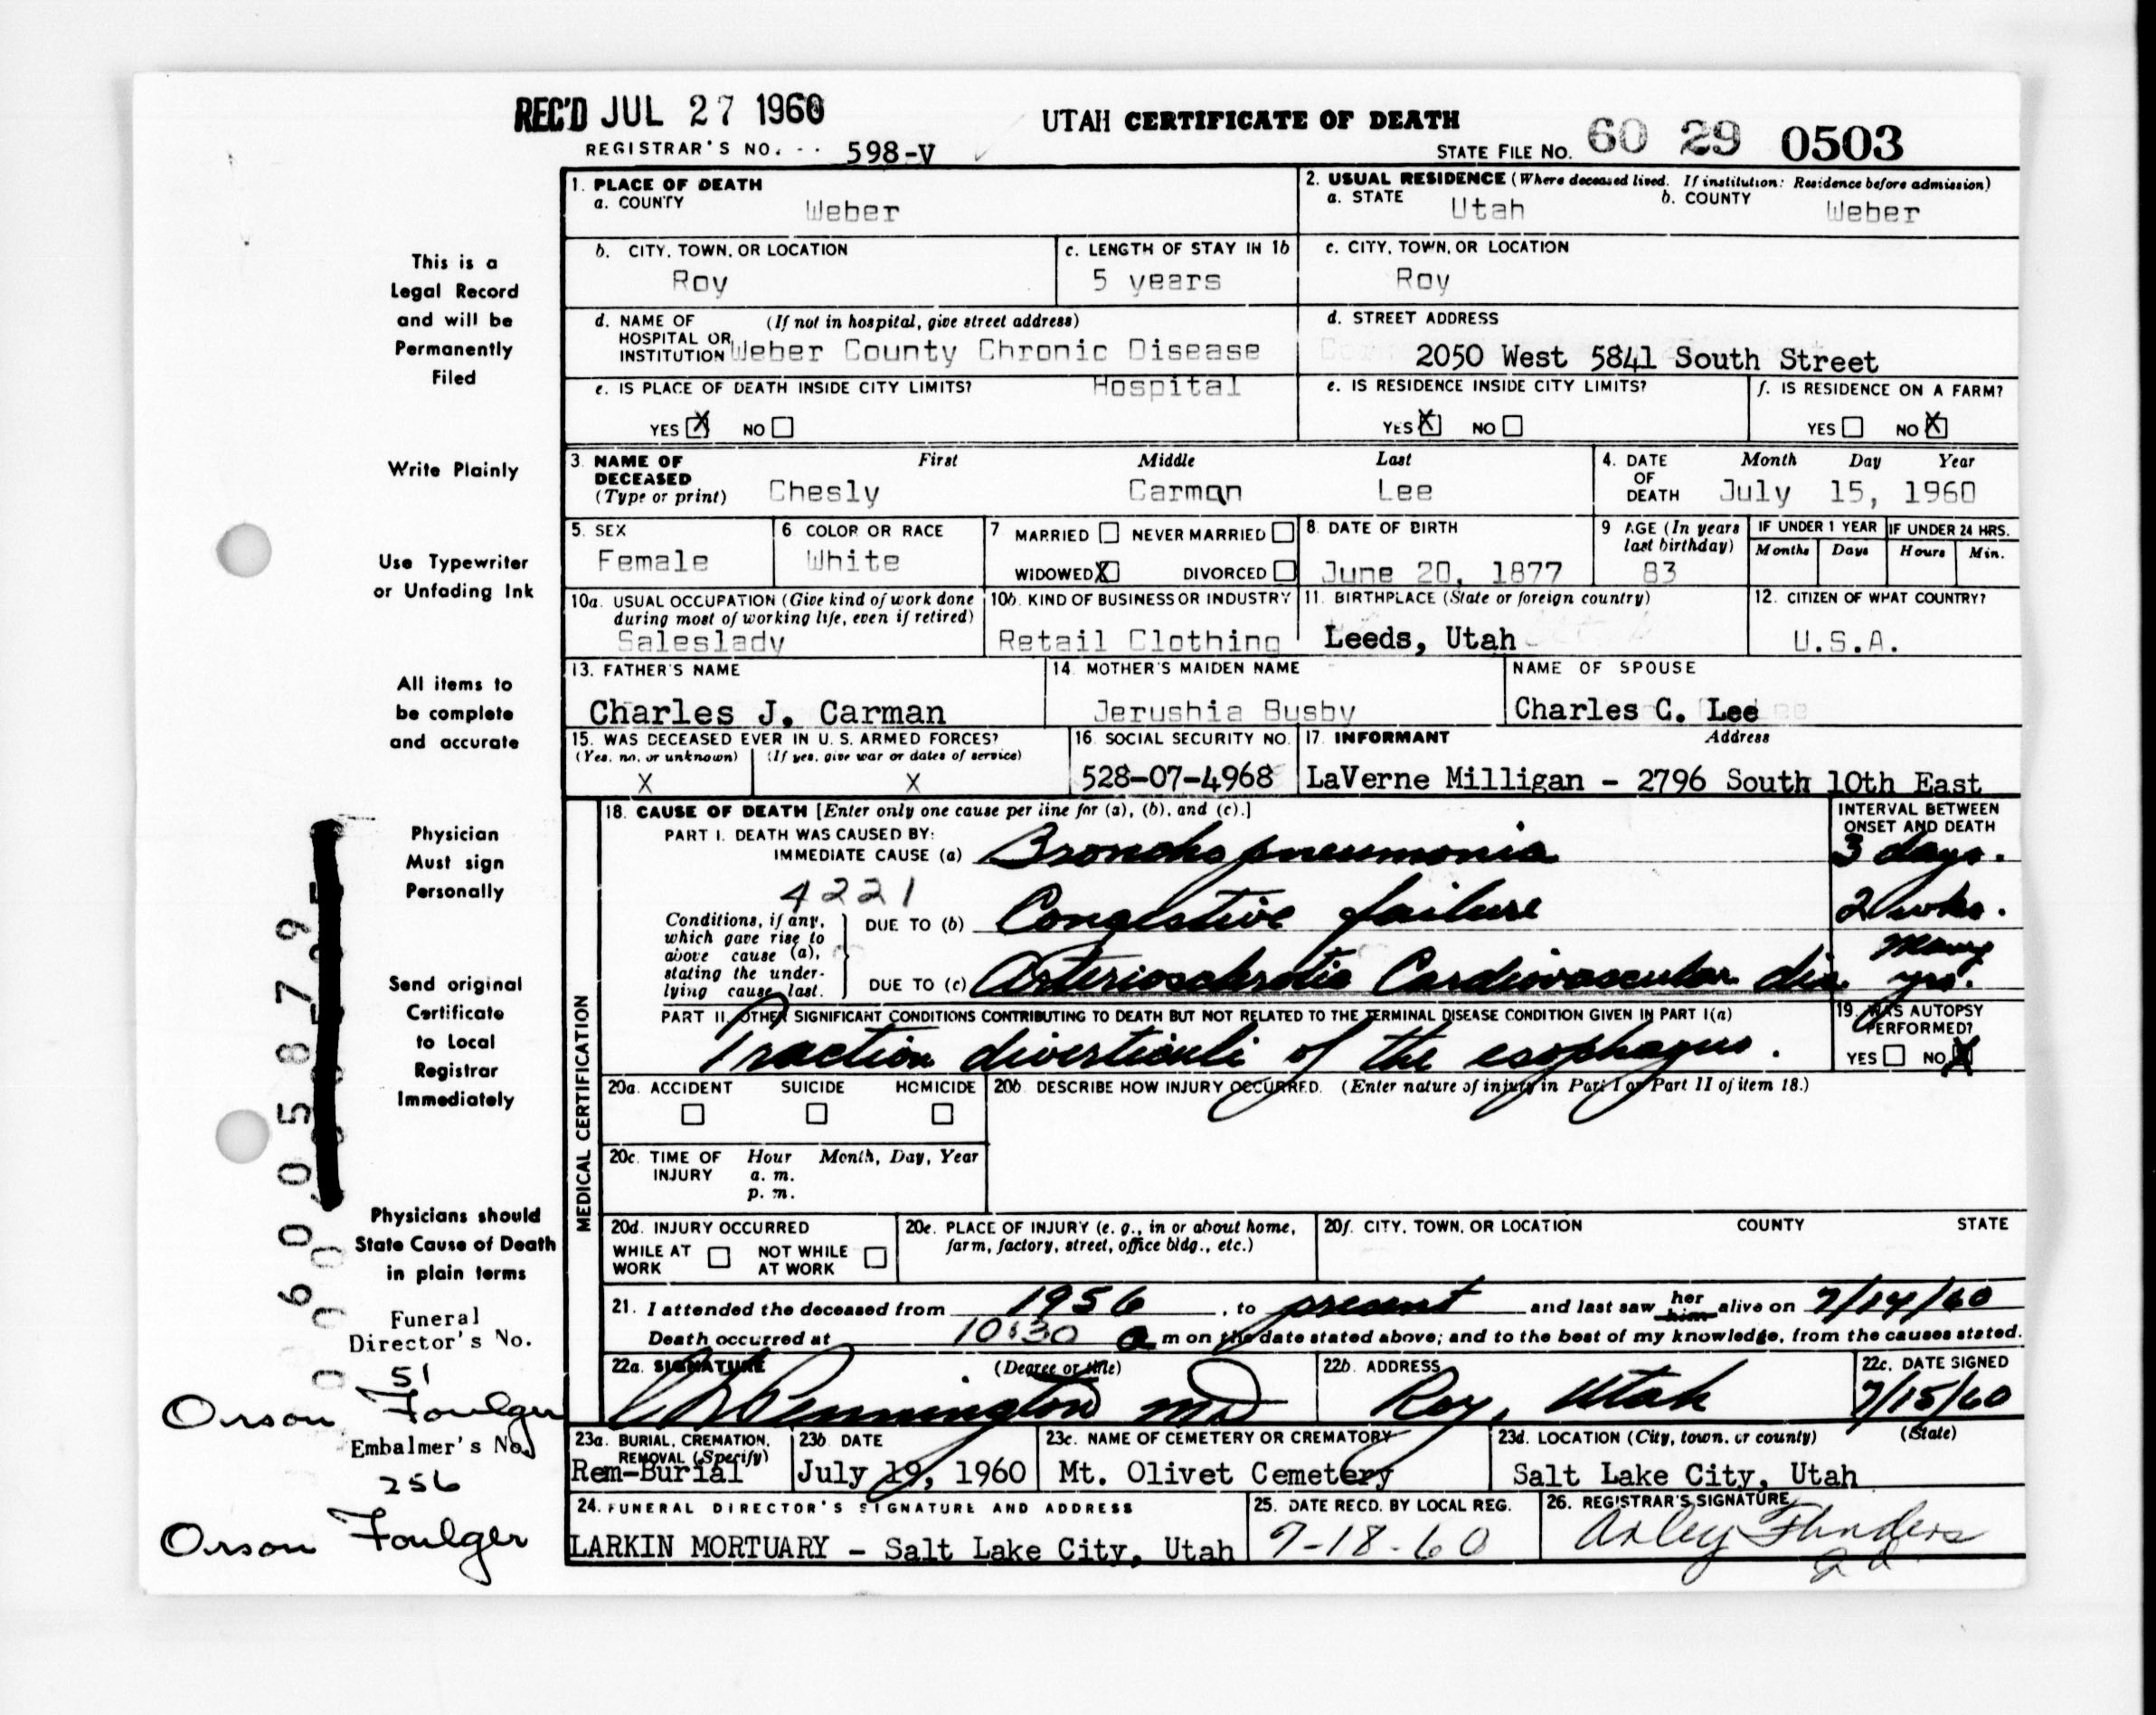 REC'D JUL 27 1960
UTAH CERTIFICATE OF DEATH
REGISTRAR'S NO. 598-V
STATE FILE NO. 60 29 0503
1. PLACE OF DEATH
a. COUNTY Weber
2. USUAL RESIDENCE (Where deceased lived. If institution: Residence before admission)
a. STATE Utah b. COUNTY Weber
b. CITY, TOWN, OR LOCATION Roy
c. LENGTH OF STAY IN 1b 5 years
c. CITY, TOWN, OR LOCATION Roy
d. NAME OF HOSPITAL OR INSTITUTION (If not in hospital, give street address) Weber County Chronic Disease Hospital
d. STREET ADDRESS 2050 West 5841 South Street
e. IS PLACE OF DEATH INSIDE CITY LIMITS?
YES X NO
e. IS RESIDENCE INSIDE CITY LIMITS?
YES X NO
f. IS RESIDENCE ON A FARM?
YES NO X
3. NAME OF DECEASED (Type or print)
First Middle Last
Chesly Carman Lee
4. DATE OF DEATH Month Day Year
July 15, 1960
5. SEX Female
6 COLOR OR RACE White
7 MARRIED NEVER MARRIED
WIDOWED X DIVORCED
8. DATE OF BIRTH June 20, 1877
9 AGE (In years last birthday) 83
IF UNDER 1 YEAR Months Days
IF UNDER 24 HRS. Hours Min.
10a. USUAL OCCUPATION (Give kind of work done during most of working life, even if retired) Saleslady
10b. KIND OF BUSINESS OR INDUSTRY Retail Clothing
11. BIRTHPLACE (State or foreign country) Leeds, Utah
12. CITIZEN OF WHAT COUNTRY? U.S.A.
13. FATHER'S NAME Charles J. Carman
14. MOTHER'S MAIDEN NAME Jerushia Busby
NAME OF SPOUSE Charles C. Lee
15. WAS DECEASED EVER IN U. S. ARMED FORCES?
(Yes, no, or unknown) (If yes, give war or dates of service)
X X
16. SOCIAL SECURITY NO. 528-07-4968
17. INFORMANT Address
LaVerne Milligan - 2796 South 10th East
MEDICAL CERTIFICATION
18. CAUSE OF DEATH [Enter only one cause per line for (a), (b), and (c).]
INTERVAL BETWEEN ONSET AND DEATH
PART I. DEATH WAS CAUSED BY:
IMMEDIATE CAUSE (a) Broncho pneumonia 3 days.
4221
Conditions, if any, which gave rise to above cause (a), stating the underlying cause last.
DUE TO (b) Congestive failure 2 wks.
DUE TO (c) Arteriosclerotic Cardiovascular dis. many yrs.
PART II. OTHER SIGNIFICANT CONDITIONS CONTRIBUTING TO DEATH BUT NOT RELATED TO THE TERMINAL DISEASE CONDITION GIVEN IN PART I(a)
Traction diverticuli of the esophagus.
19. WAS AUTOPSY PERFORMED?
YES NO X
20a. ACCIDENT SUICIDE HOMICIDE
20b. DESCRIBE HOW INJURY OCCURRED. (Enter nature of injury in Part I or Part II of item 18.)
20c. TIME OF INJURY Hour Month, Day, Year
a. m.
p. m.
20d. INJURY OCCURRED
WHILE AT WORK NOT WHILE AT WORK
20e. PLACE OF INJURY (e. g., in or about home, farm, factory, street, office bldg., etc.)
20f. CITY, TOWN, OR LOCATION COUNTY STATE
21. I attended the deceased from 1956, to present and last saw her him alive on 7/14/60
Death occurred at 10:30 a m on the date stated above; and to the best of my knowledge, from the causes stated.
22a. SIGNATURE (Degree or title)
Pennington MD
22b. ADDRESS Roy, Utah
22c. DATE SIGNED 7/15/60
23a. BURIAL, CREMATION, REMOVAL (Specify) Rem-Burial
23b DATE July 19, 1960
23c. NAME OF CEMETERY OR CREMATORY Mt. Olivet Cemetery
23d. LOCATION (City, town, or county) (State)
Salt Lake City, Utah
24. FUNERAL DIRECTOR'S SIGNATURE AND ADDRESS
LARKIN MORTUARY - Salt Lake City, Utah
25. DATE RECD. BY LOCAL REG. 7-18-60
26. REGISTRAR'S SIGNATURE
Arley Flinders
This is a
Legal Record
and will be
Permanently
Filed
Write Plainly
Use Typewriter
or Unfading Ink
All items to
be complete
and accurate
Physician
Must sign
Personally
Send original
Certificate
to Local
Registrar
Immediately
Physicians should
State Cause of Death
in plain terms
Funeral
Director's No.
51
Orson Foulger
Embalmer's No.
256
Orson Foulger